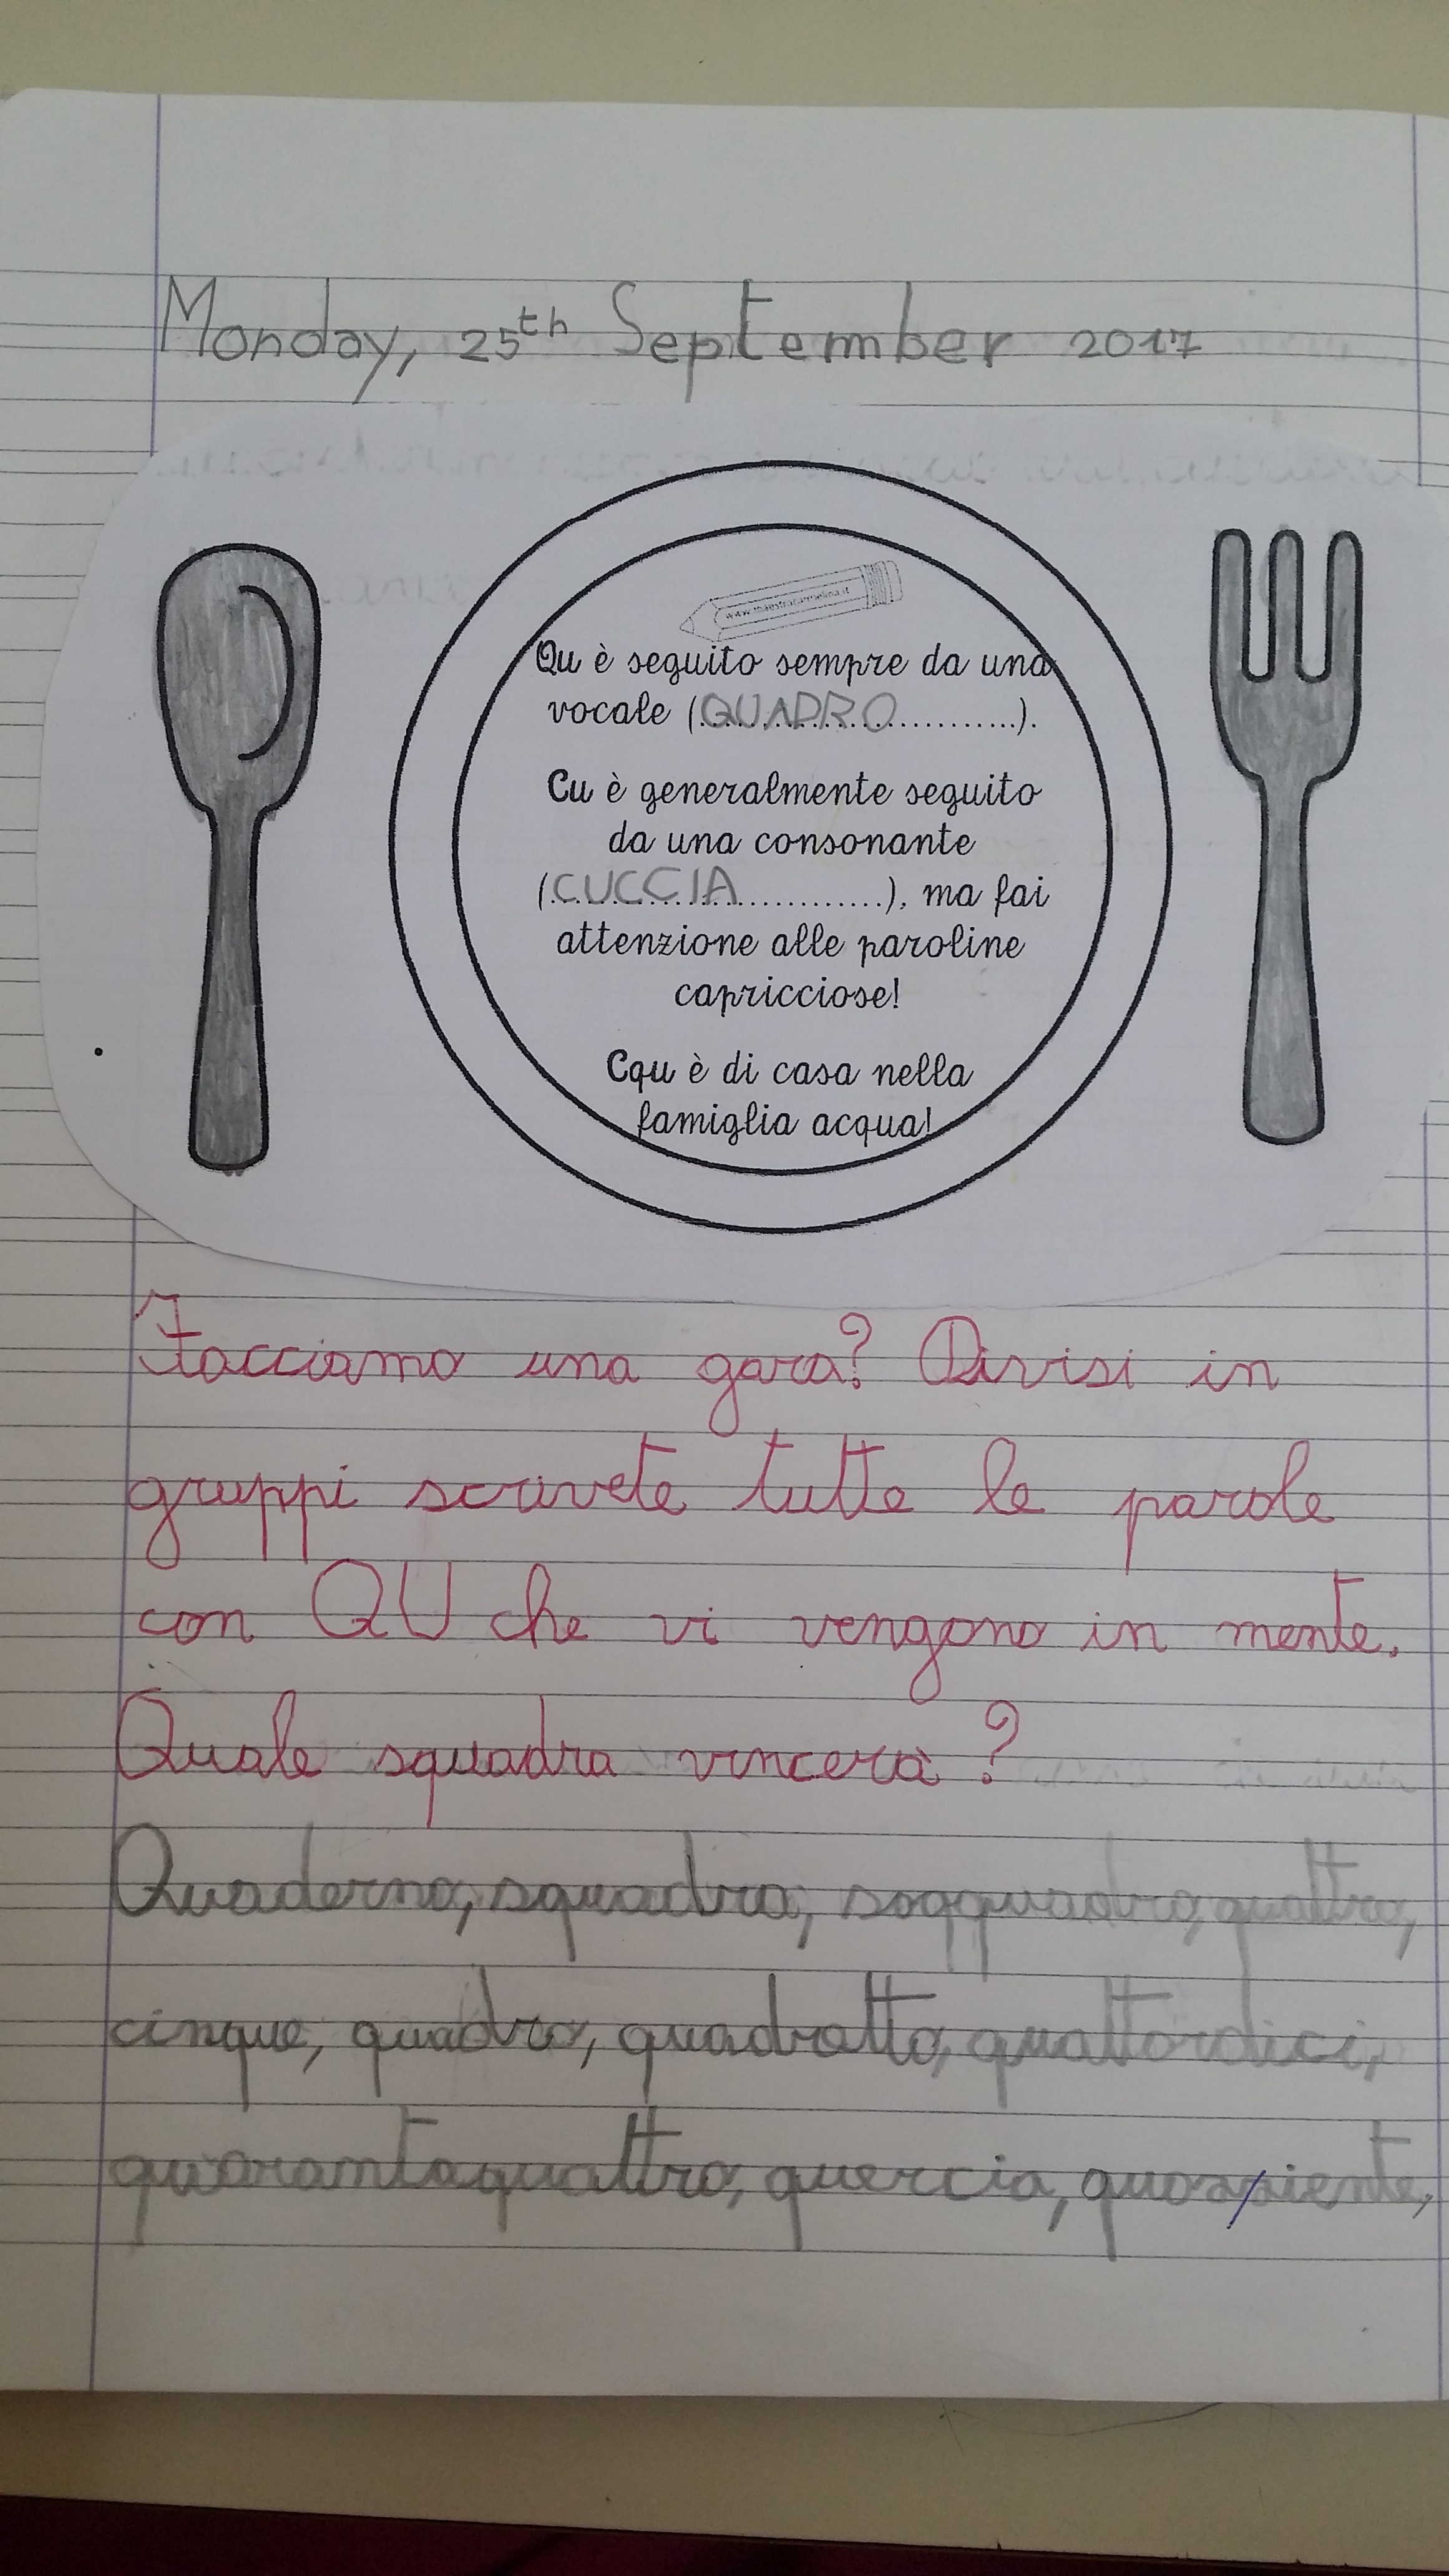 Monday, 25th September 2017
www.maestracarmelina.it
Qu è seguito sempre da una
vocale (QUADRO).
Cu è generalmente seguito
da una consonante
(CUCCIA), ma fai
attenzione alle paroline
capricciose!
Cqu è di casa nella
famiglia acqua!
Facciamo una gara? Divisi in
gruppi scrivete tutte le parole
con QU che vi vengono in mente.
Quale squadra vincerà?
Quaderno, squadra, soqquadro, quattro,
cinque, quadro, quadratto, quattordici,
quarantaquattro, quercia,